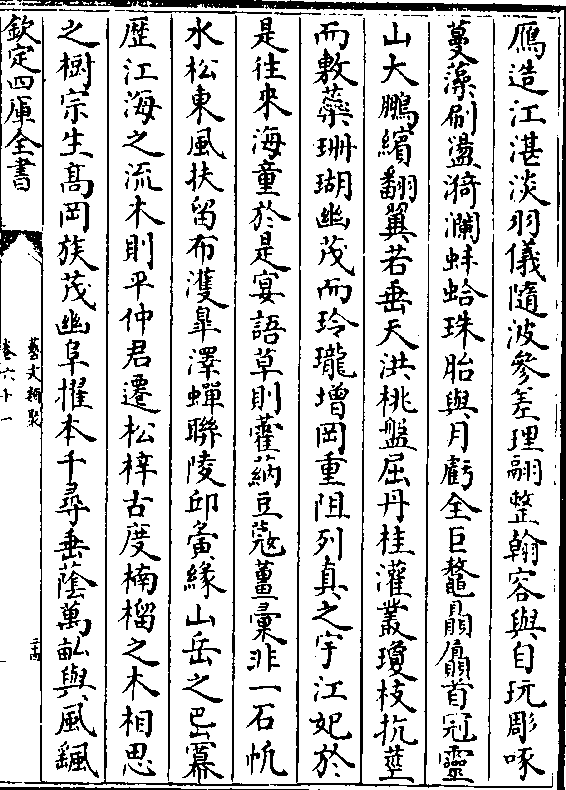 鴈造江湛淡羽儀隨波參差理翮整翰容與自玩彫啄
蔓藻刷盪漪瀾蚌蛤珠胎與月虧全巨鼇贔屭首冠靈
山大鵬繽翻翼若垂天洪桃盤屈丹桂灌叢瓊枝抗莖
而敷蘂珊瑚幽茂而玲瓏增岡重阻列真之宇江妃於
是往來海童於是宴語草則藿蒳豆蔻薑彚非一石帆
水松東風扶留布濩臯澤蟬聯陵邱夤緣山岳之岊冪
歷江海之流木則平仲君遷松梓古度楠榴之木相思
之樹宗生髙岡族茂幽阜擢本千尋垂蔭萬畝與風飖
欽定四庫全書
藝文類聚
卷六十一